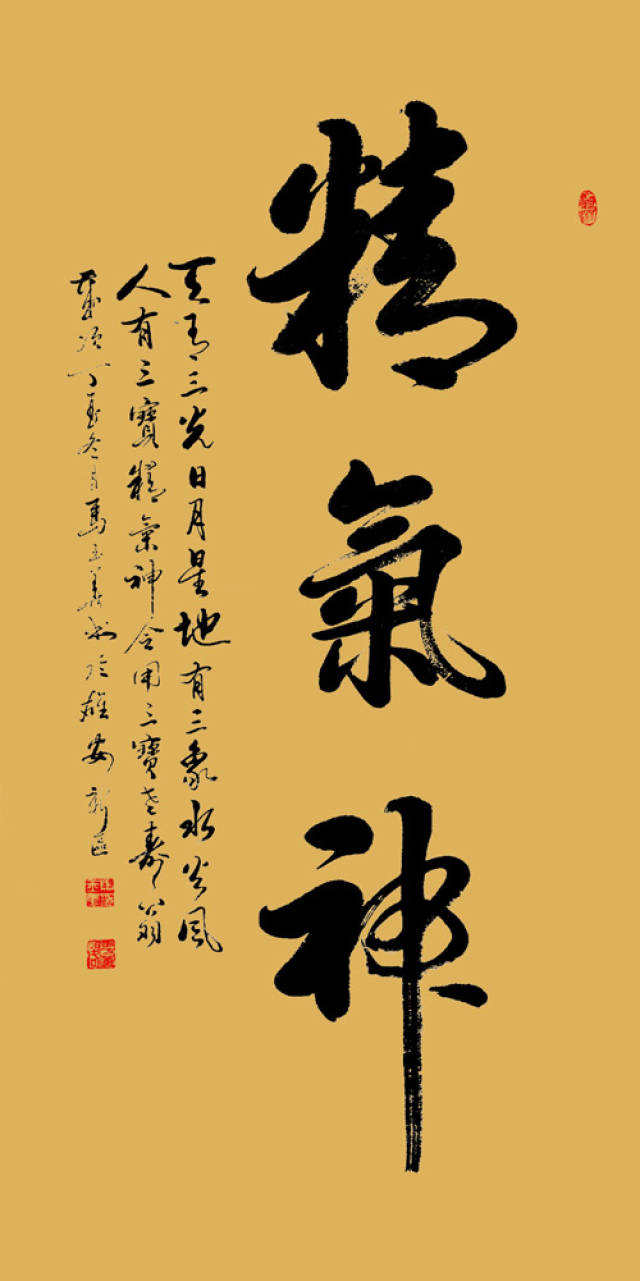 精氣神
天有三光日月星地有三象水火風
人有三寶精氣神合用三寶老壽翁
歲次丁酉冬月馬玉書於雄安新區